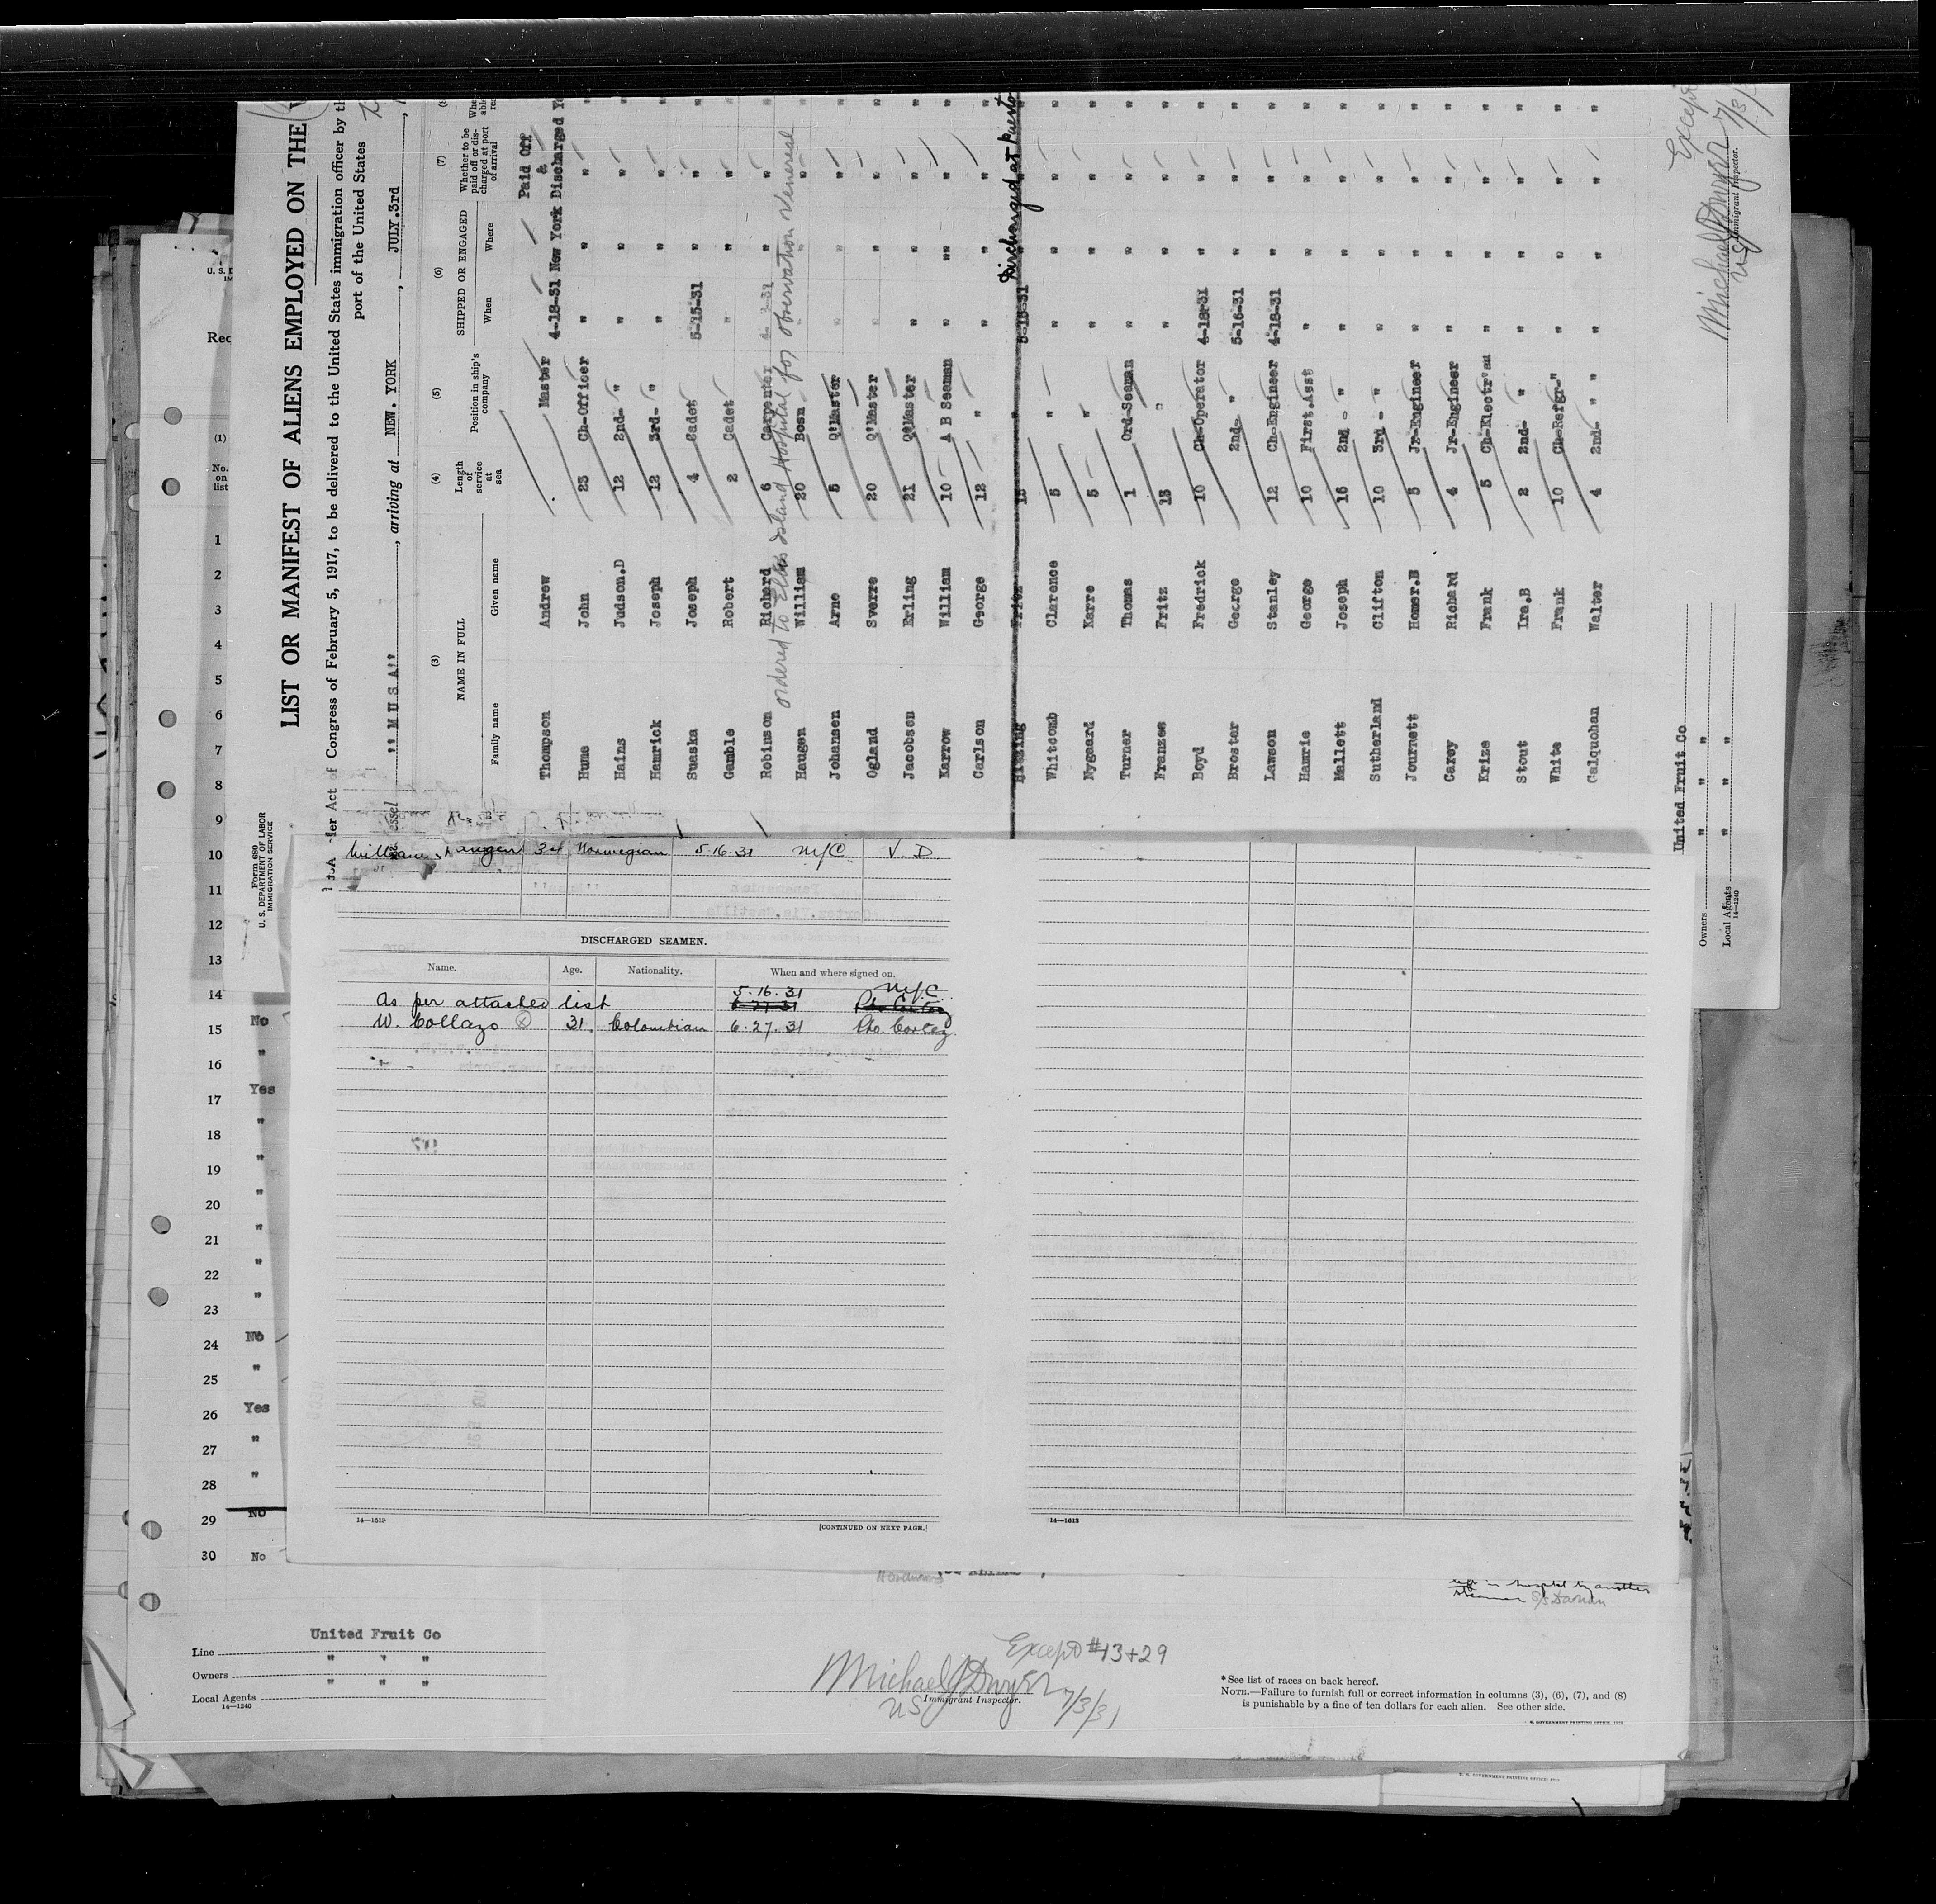 LIST OR MANIFEST OF ALIENS EMPLOYED ON THE
Act of Congress of February 5, 1917, to be delivered to the United States immigration officer by
port of the United States
"M U S A", arriving at NEW. YORK, JULY.3rd
(3) (4) (5) (6) (7)
NAME IN FULL Length of service at sea Position in ship's company SHIPPED OR ENGAGED Whether to be paid off or discharged at port of arrival
Family name Given name When Where
Paid Off
&
Thompson Andrew Master 4-18-31 New York Discharged
Hume John 23 Ch-Officer " " "
Hains Judson.D 12 2nd- " " " "
Hamrick Joseph 12 3rd- " " " "
Suaska Joseph 4 Cadet 5-15-31 " "
Gamble Robert 2 Cadet " " "
Robinson Richard 6 Carpenter " "
ordered to Ellis Island Hospital for observation Venereal
Haugen William 20 Bosn " " "
Johansen Arne 5 Q'Master " " "
Ogland Sverre 20 Q'Master " " "
Jacobsen Erling 21 Q'Master " " "
Karrow William 10 A B Seaman " " "
Carlson George 12 " " " "
Fritz 5-15-31 Discharged at Puerto
Whitcomb Clarence 5 " " " "
Nygaard Karre 5 " " " "
Turner Thomas 1 Ord-Seaman " " "
Franzee Fritz 13 " " " "
Boyd Fredrick 10 Ch-Operator 4-18-31 " "
Broster George 2nd- " 5-16-31 " "
Lawson Stanley 12 Ch-Engineer 4-18-31 " "
Hamrie George 10 First.Asst " " "
Mallett Joseph 16 2nd - " " " "
Sutherland Clifton 10 3rd - " " " "
Journett Homer.B 5 Jr-Engineer " " "
Carey Richard 4 Jr-Engineer " " "
Krize Frank 5 Ch-Electr'an " " "
Stout Ira.B 2 2nd- " " " "
White Frank 10 Ch-Refgr-" " " "
Calquohan Walter 4 2nd- " " " " "
United Fruit Co
Owners " " "
Local Agents " " "
14—1240
Michael J Dwyer
US Immigrant Inspector.
Form 689
U. S. DEPARTMENT OF LABOR
IMMIGRATION SERVICE
(1)
No. on list
1
2
3
4
5
6
7
8
9
10
11
12
13
14
No
15
"
16
Yes
17
"
18
"
19
"
20
"
21
"
22
"
23
No
24
"
25
Yes
26
"
27
"
28
No
29
30 No
William Haugen 34 Norwegian 5·16·31 N.Y.C V. D
DISCHARGED SEAMEN.
Name. Age. Nationality. When and where signed on.
5·16·31 N.Y.C.
As per attached list 6·27·31 Pto Cortez
W. Collazo 31 Colombian 6·27·31 Pto. Cortez
14—1613 [CONTINUED ON NEXT PAGE.]
14—1613
left in hospital by another
steamer S/S Darian
Line United Fruit Co
Owners " " "
Local Agents " " "
14—1240
Except #13+29
Michael J Dwyer
US Immigrant Inspector. 7/3/31
*See list of races on back hereof.
NOTE.—Failure to furnish full or correct information in columns (3), (6), (7), and (8)
is punishable by a fine of ten dollars for each alien. See other side.